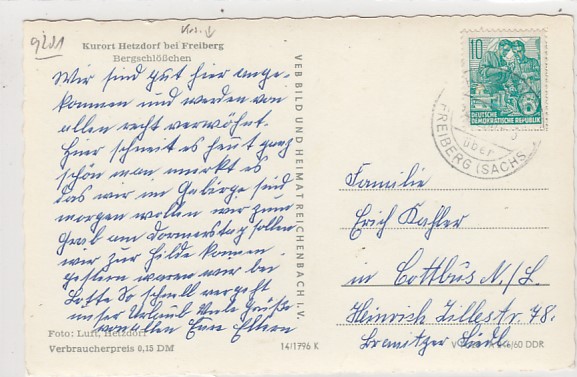 9201
Kurort Hetzdorf bei Freiberg
Bergschlößchen
Wir sind gut hier ange-
kommen und werden von
allen recht verwöhnt.
Hier schneit es heut ganz
schön man merkt es
das wir im Gebirge sind
morgen wollen wir zum
Grab am Donnerstag sollen
wir zur Hilde kommen.
gestern waren wir bei
Lotte So schnell vergeht
unser Urlaub Viele Grüße
von allen Eure Eltern
Foto: Luft, Hetzdorf
Verbraucherpreis 0,15 DM
14/1796 K
VEB BILD UND HEIMAT REICHENBACH I. V.
10
DEUTSCHE
DEMOKRATISCHE REPUBLIK
über
FREIBERG (SACHS
Familie
Erich Kahler
in Cottbus N./L.
Heinrich Zillestr. 78.
Branitzer Siedl.
60 DDR